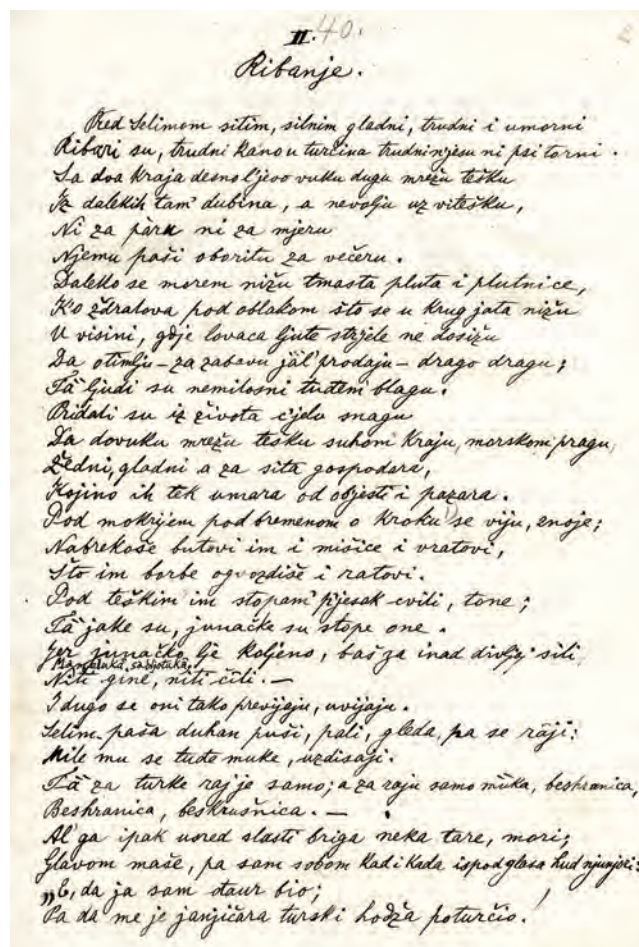 II. 40.
Ribanje.
Pred Selimom sitim, silnim gladni, trudni i umorni
Ribari su, trudni kano u turčina trudni njesu ni psi torni.
Sa dva kraja desno ljevo vuku dugu mrežu tešku
Iz dalekih tam' dubina, a nevolju uz vitešku,
Ni za paru ni za mjeru
Njemu paši oboritu za večeru.
Daleko se morem nižu tmasta pluta i plutnice,
K'o ždralova pod oblakom što se u krug jata nižu
U visini, gdje lovaca ljute strijele ne dosižu
Da otimlju - za zabavu jal' prodaju - drago dragu;
Ta ljudi su nemilosni tuđem blagu.
Pridali su iz života c'jelu snagu
Da dovuku mrežu tešku suhom kraju, morskom pragu,
Žedni, gladni a za sita gospodara,
Kojino ih tek umara od objesti i pazara.
Pod mokrijem pod bremenom o kroku 1) se viju, znoje;
Nabrekoše butovi im i mišice i vratovi,
Što im borbe ogvozdiše i ratovi.
Pod teškim im stopam' pjesak cvili, tone;
Ta jake su, junačke su stope one.
Jer junačko lje koljeno, baš za inad divljoj sili
Mameluka, sabljotuka,
Niti gine, niti čili. —
I dugo se oni tako previjaju, uvijaju.
Selim-paša duhan puši, pali, gleda, pa se raji:
Mile mu se tuđe muke, uzdisaji.
Ta za turke raj je samo; a za raju samo muka, beshranica,
Beshranica, beskrušnica. —
Al' ga ipak usred slasti briga neka tare, mori;
Glavom maše, pa sam sobom kad i kada ispod glasa hud njunjori:
„E, da ja sam đaur bio;
Pa da me je janjičara turski hodža poturčio!